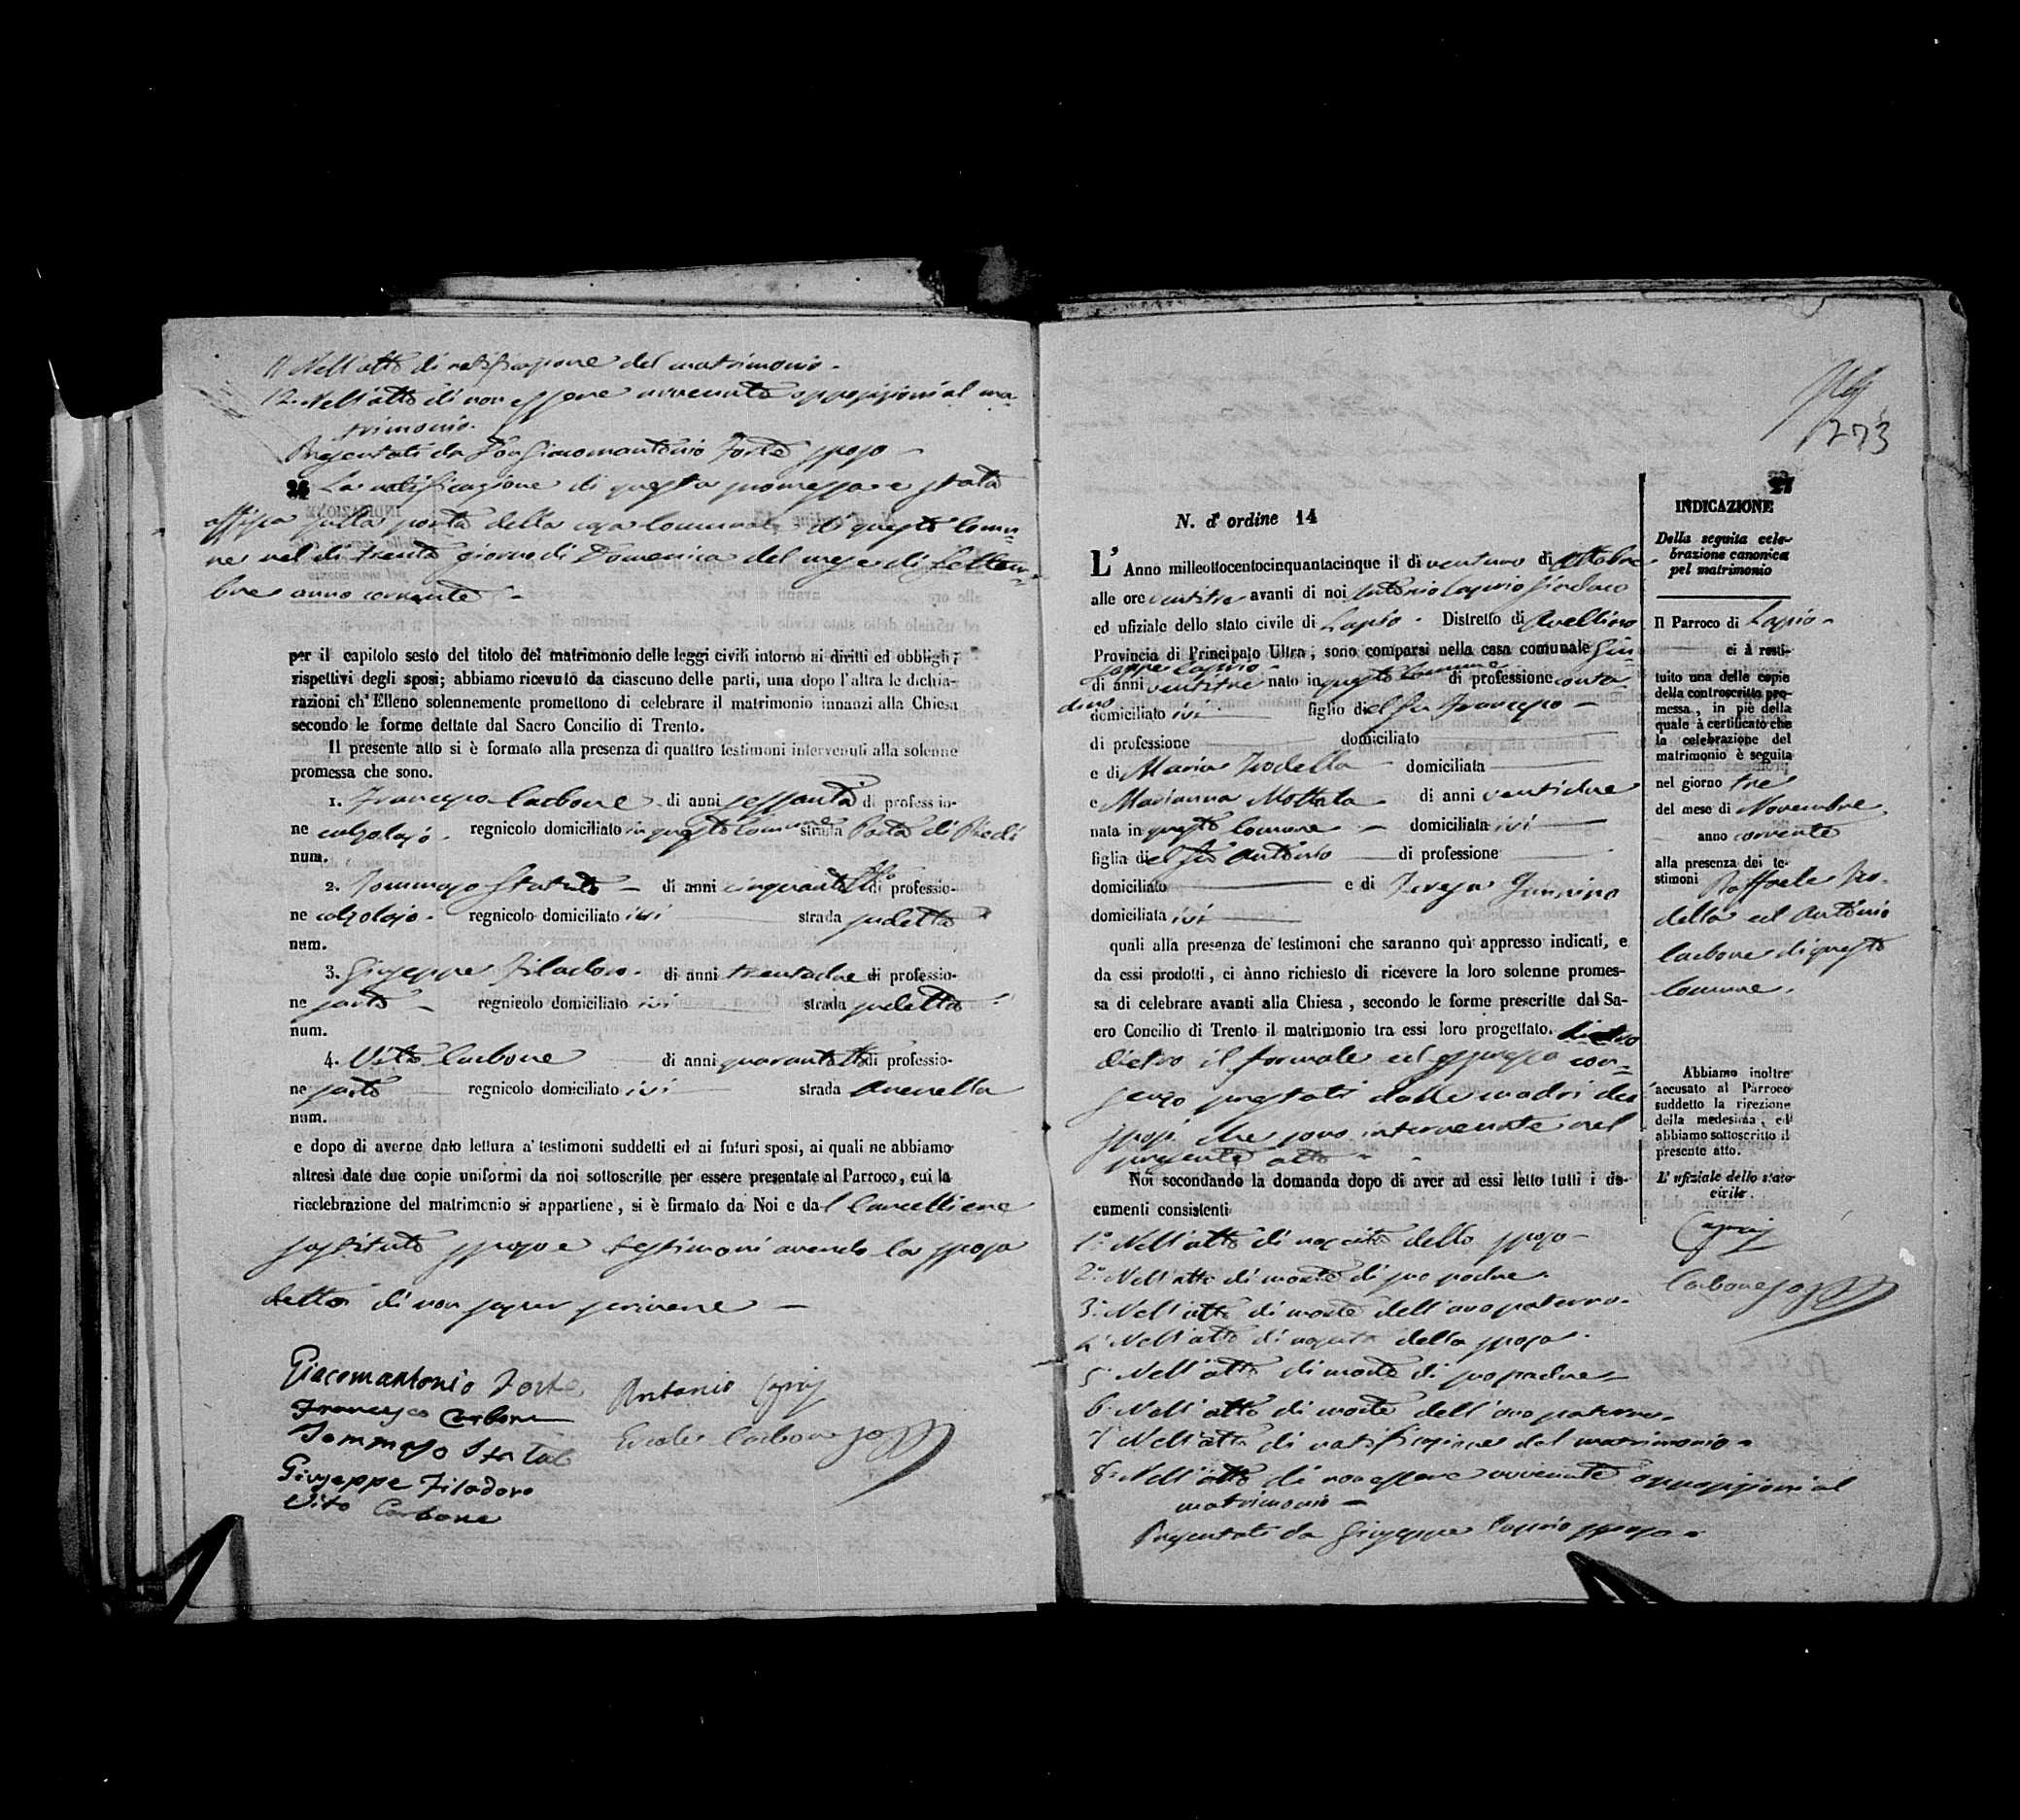 11 Nell'atto di notificazione del matrimonio.
12. Nell'atto di non essere avvenute opposizioni al ma-
trimonio.
Presentati da Don Giacomantonio Forte sposo
26 La notificazione di questa promessa è stata
affissa sulla porta della casa Comunale di questo Comu-
ne nel dì trenta giorno di Domenica del mese di Settem-
bre anno corrente
per il capitolo sesto del titolo del matrimonio delle leggi civili intorno ai diritti ed obblighi
rispettivi degli sposi; abbiamo ricevuto da ciascuno delle parti, una dopo l'altra le dichia-
razioni ch'Elleno solennemente promettono di celebrare il matrimonio innanzi alla Chiesa
secondo le forme dettate dal Sacro Concilio di Trento.
Il presente atto si è formato alla presenza di quattro testimoni intervenuti alla solenne
promessa che sono.
1. Francesco Carbone di anni sessanta di professio-
ne calzolajo. regnicolo domiciliato in questo Comune strada Porta di Piedi
num.
2. Tommaso Statuto di anni cinquantotto di professio-
ne calzolajo. regnicolo domiciliato ivi strada
num.
3. Giuseppe Filadoro. di anni trentadue di professio-
ne sarto regnicolo domiciliato ivi strada
num.
4. Vito Carbone di anni quarantotto di professio-
ne sarto regnicolo domiciliato ivi strada Arenella
num.
e dopo di averne dato lettura a' testimoni suddetti ed ai futuri sposi, ai quali ne abbiamo
altresì date due copie uniformi da noi sottoscritte per essere presentate al Parroco, cui la
ricelebrazione del matrimonio si appartiene, si è firmato da Noi e dal Cancelliere
sostituto sposo e testimoni avendo la sposa
detto di non saper scrivere
Giacomantonio Forte
Francesco Carbone
Tommaso Statuto
Giuseppe Filadoro
Vito Carbone
Antonio Caprio
Carbone sost
273
27
N. d'ordine 14
L'Anno milleottocentocinquantacinque il dì ventuno di Ottobre
alle ore ventitre avanti di noi Antonio Caprio Sindaco
ed ufiziale dello stato civile di Lapio. Distretto di Avellino
Provincia di Principato Ultra, sono comparsi nella casa comunale Giu-
seppe Caprio
di anni ventitre nato in questo Comune di professione conta-
dino
domiciliato ivi figlio di del fu Francesco
di professione domiciliato
e di Maria Trodella domiciliata
e Marianna Mottola di anni ventidue
nata in questo Comune domiciliata ivi
figlia di del fu Antonio di professione
domiciliato e di Teresa Jannino
domiciliata ivi
quali alla presenza de' testimoni che saranno quì appresso indicati, e
da essi prodotti, ci ànno richiesto di ricevere la loro solenne promes-
sa di celebrare avanti alla Chiesa, secondo le forme prescritte dal Sa-
cro Concilio di Trento il matrimonio tra essi loro progettato. dietro
dietro il formale ed espresso con-
senso prestato dalle madri dei
sposi che sono intervenute nel
presente atto
Noi secondando la domanda dopo di aver ad essi letto tutti i do-
cumenti consistenti
1° Nell'atto di nascita dello sposo
2° Nell'atto di morte di suo padre.
3° Nell'atto di morte dell'avo paterno.
4° Nell'atto di nascita della sposa.
5° Nell'atto di morte di suo padre
6° Nell'atto di morte dell'avo paterno.
7° Nell'atto di notificazione del matrimonio
8° Nell'atto di non essere avvenute opposizioni al
matrimonio
Presentati da Giuseppe Caprio sposo
INDICAZIONE
Della seguita cele-
brazione canonica
pel matrimonio
Il Parroco di Lapio
ci à resti-
tuito una delle copie
della controscritta pro-
messa, in piè della
quale à certificato che
la celebrazione del
matrimonio è seguita
nel giorno tre
del mese di Novembre
anno corrente
alla presenza dei te-
stimoni Raffaele Tro-
della ed Antonio
Carbone di questo
Comune.
Abbiamo inoltre
accusato al Parroco
suddetto la ricezione
della medesima, ed
abbiamo sottoscritto il
presente atto.
L'ufiziale dello stato
civile.
Caprio
Carbone sost